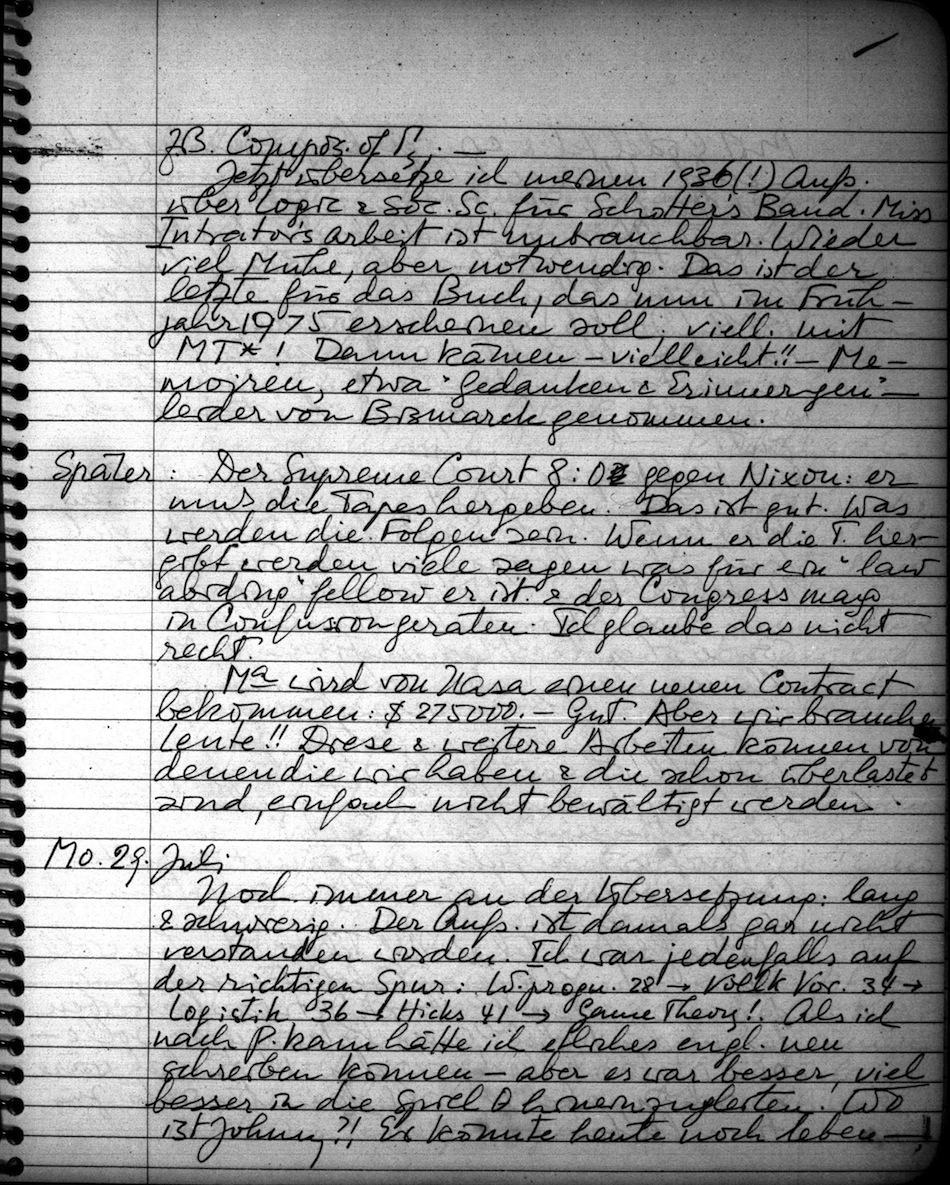 zB. Compos. of Γ. —
Jetzt übersetze ich meinen 1936(!) Aufs.
über Logic & Soc. Sc. für Schotter's Band. Miss
Intrator's arbeit ist unbrauchbar. Wieder
viel Mühe, aber notwendig. Das ist der
letzte für das Buch, das nun im Früh-
jahr 1975 erscheinen soll, viell. mit
MT* ! Dann kämen – vielleicht!! – Me-
moiren, etwa "Gedanken & Erinnergen" —
leider von Bismarck genommen.
Später : Der Supreme Court 8:0 gegen Nixon: er
muß die Tapes hergeben. Das ist gut. Was
werden die Folgen sein. Wenn er die T. her-
gibt werden viele sagen was für ein "law
abiding" fellow er ist & der Congress mag
in Confusion geraten. Ich glaube das nicht
recht.
Ma wird von Nasa einen neuen Contract
bekommen: $ 275000.– Gut. Aber wir brauchen
Leute!! Diese & weitere Arbeiten können von
denen die wir haben & die schon überlastet
sind, einfach nicht bewältigt werden.
Mo. 29. Juli
Noch immer an der Übersetzung: lang
& schwierig. Der Aufs. ist damals gar nicht
verstanden worden. Ich war jedenfalls auf
der richtigen Spur: W.progn. 28 → Vollk Vor. 34 →
Logistik 36 → Hicks 41 → Game Theory!. Als ich
nach P. kam hätte ich etliches engl. neu
schreiben können – aber es war besser, viel
besser in die Spiel Θ hineinzugleiten. Wo
ist Johnny?! Er könnte heute noch leben —!